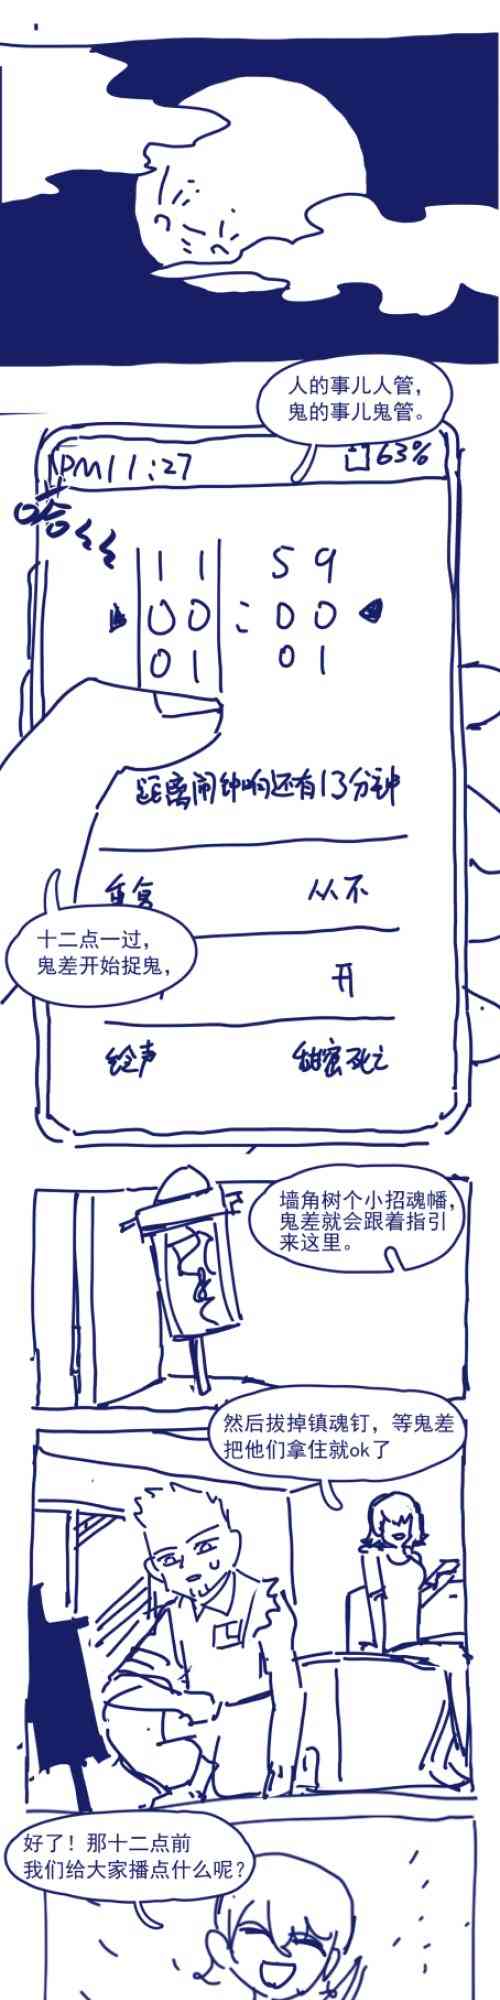 人的事儿人管，
鬼的事儿鬼管。
PM11:27
63%
哈
11 59
00:00
01 01
距离闹钟响还有13分钟
重复 从不
十二点一过，
鬼差开始捉鬼，
开
铃声 甜蜜死亡
墙角树个小招魂幡，
鬼差就会跟着指引
来这里。
然后拔掉镇魂钉，等鬼差
把他们拿住就ok了
好了！那十二点前
我们给大家播点什么呢？